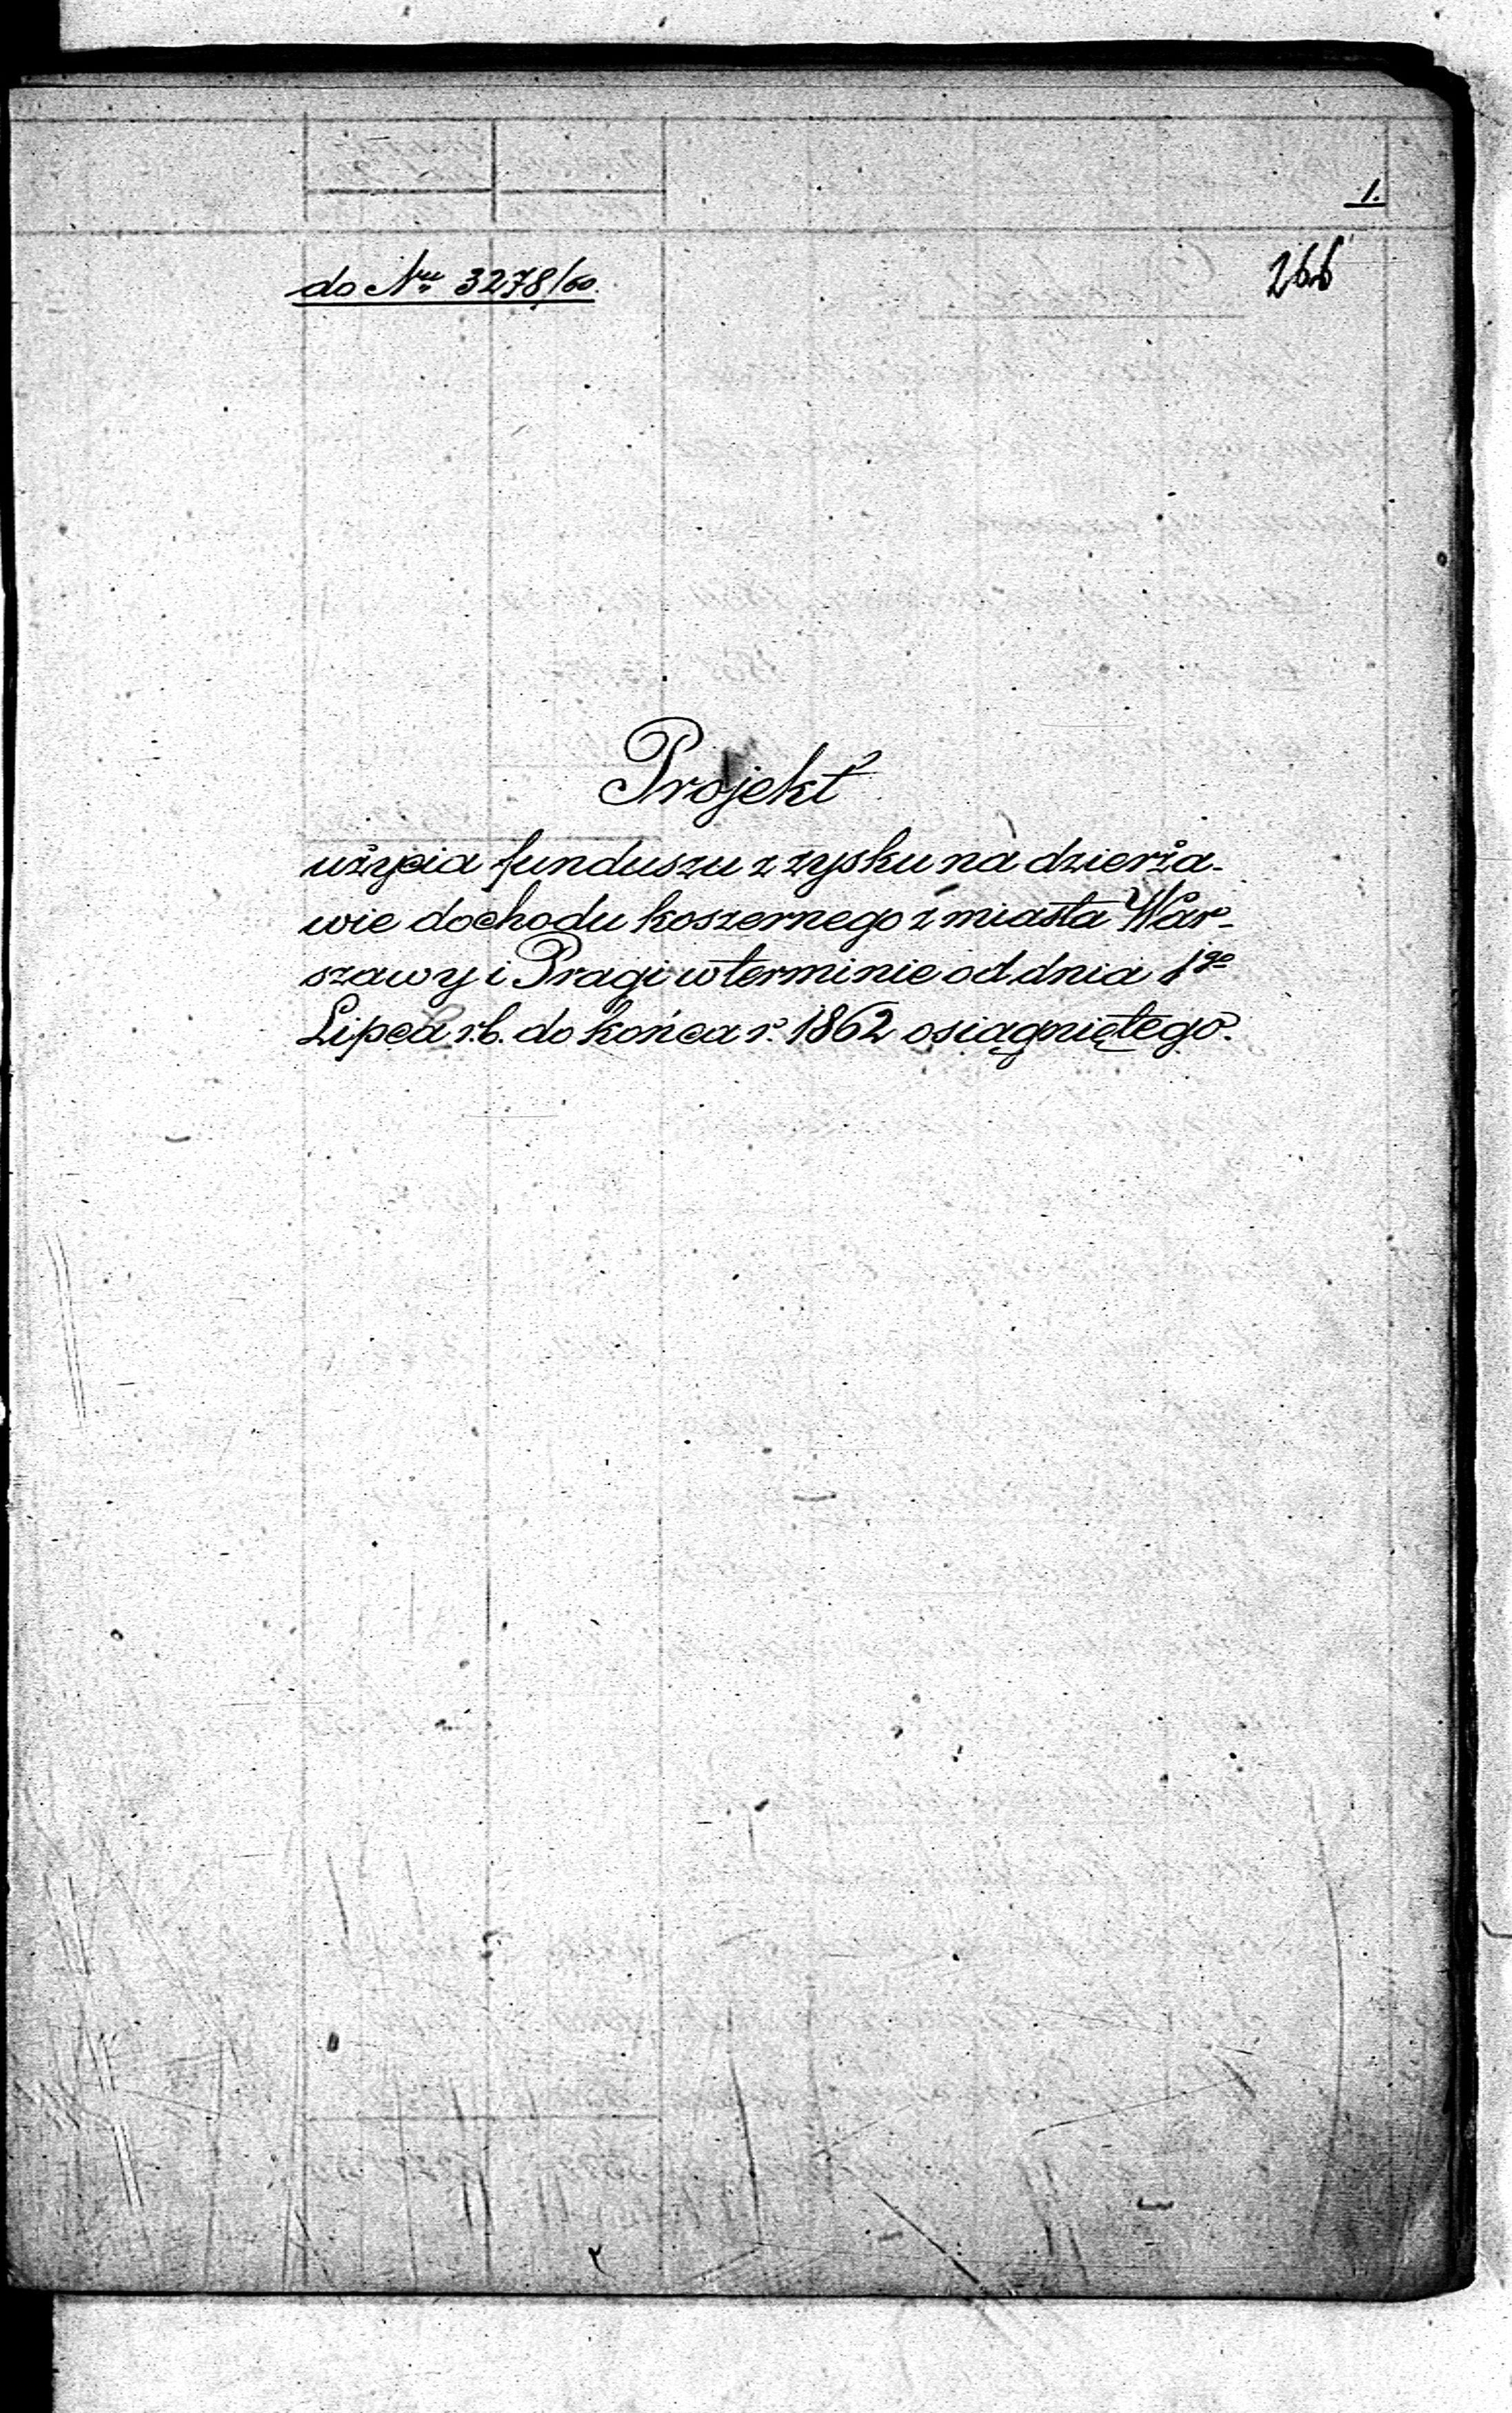 1.
266
do Nru 3278/60.
Projekt
użycia funduszu z zysku na dzierża-
wie dochodu koszernego z miasta War-
szawy i Pragi w terminie od dnia 1go
Lipca r.b. do końca r. 1862 osiągniętego.